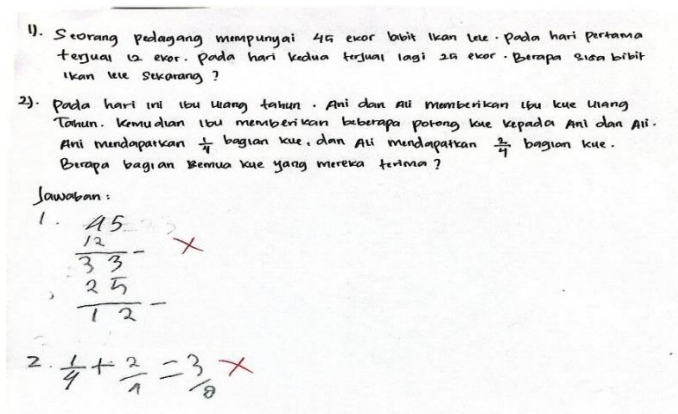 1). Seorang pedagang mempunyai 45 ekor bibit Ikan Lele. Pada hari pertama
terjual 12 ekor. Pada hari kedua terjual lagi 25 ekor. Berapa sisa bibit
ikan lele sekarang ?
2). Pada hari ini ibu ulang tahun. Ani dan Ali memberikan ibu kue ulang
Tahun. Kemudian ibu memberikan beberapa potong kue kepada Ani dan Ali.
Ani mendapatkan 1/4 bagian kue, dan Ali mendapatkan 2/4 bagian kue.
Berapa bagian semua kue yang mereka terima ?
Jawaban :
1. 45
12
33 -
25
12 -
2. 1/4 + 2/4 = 3/8